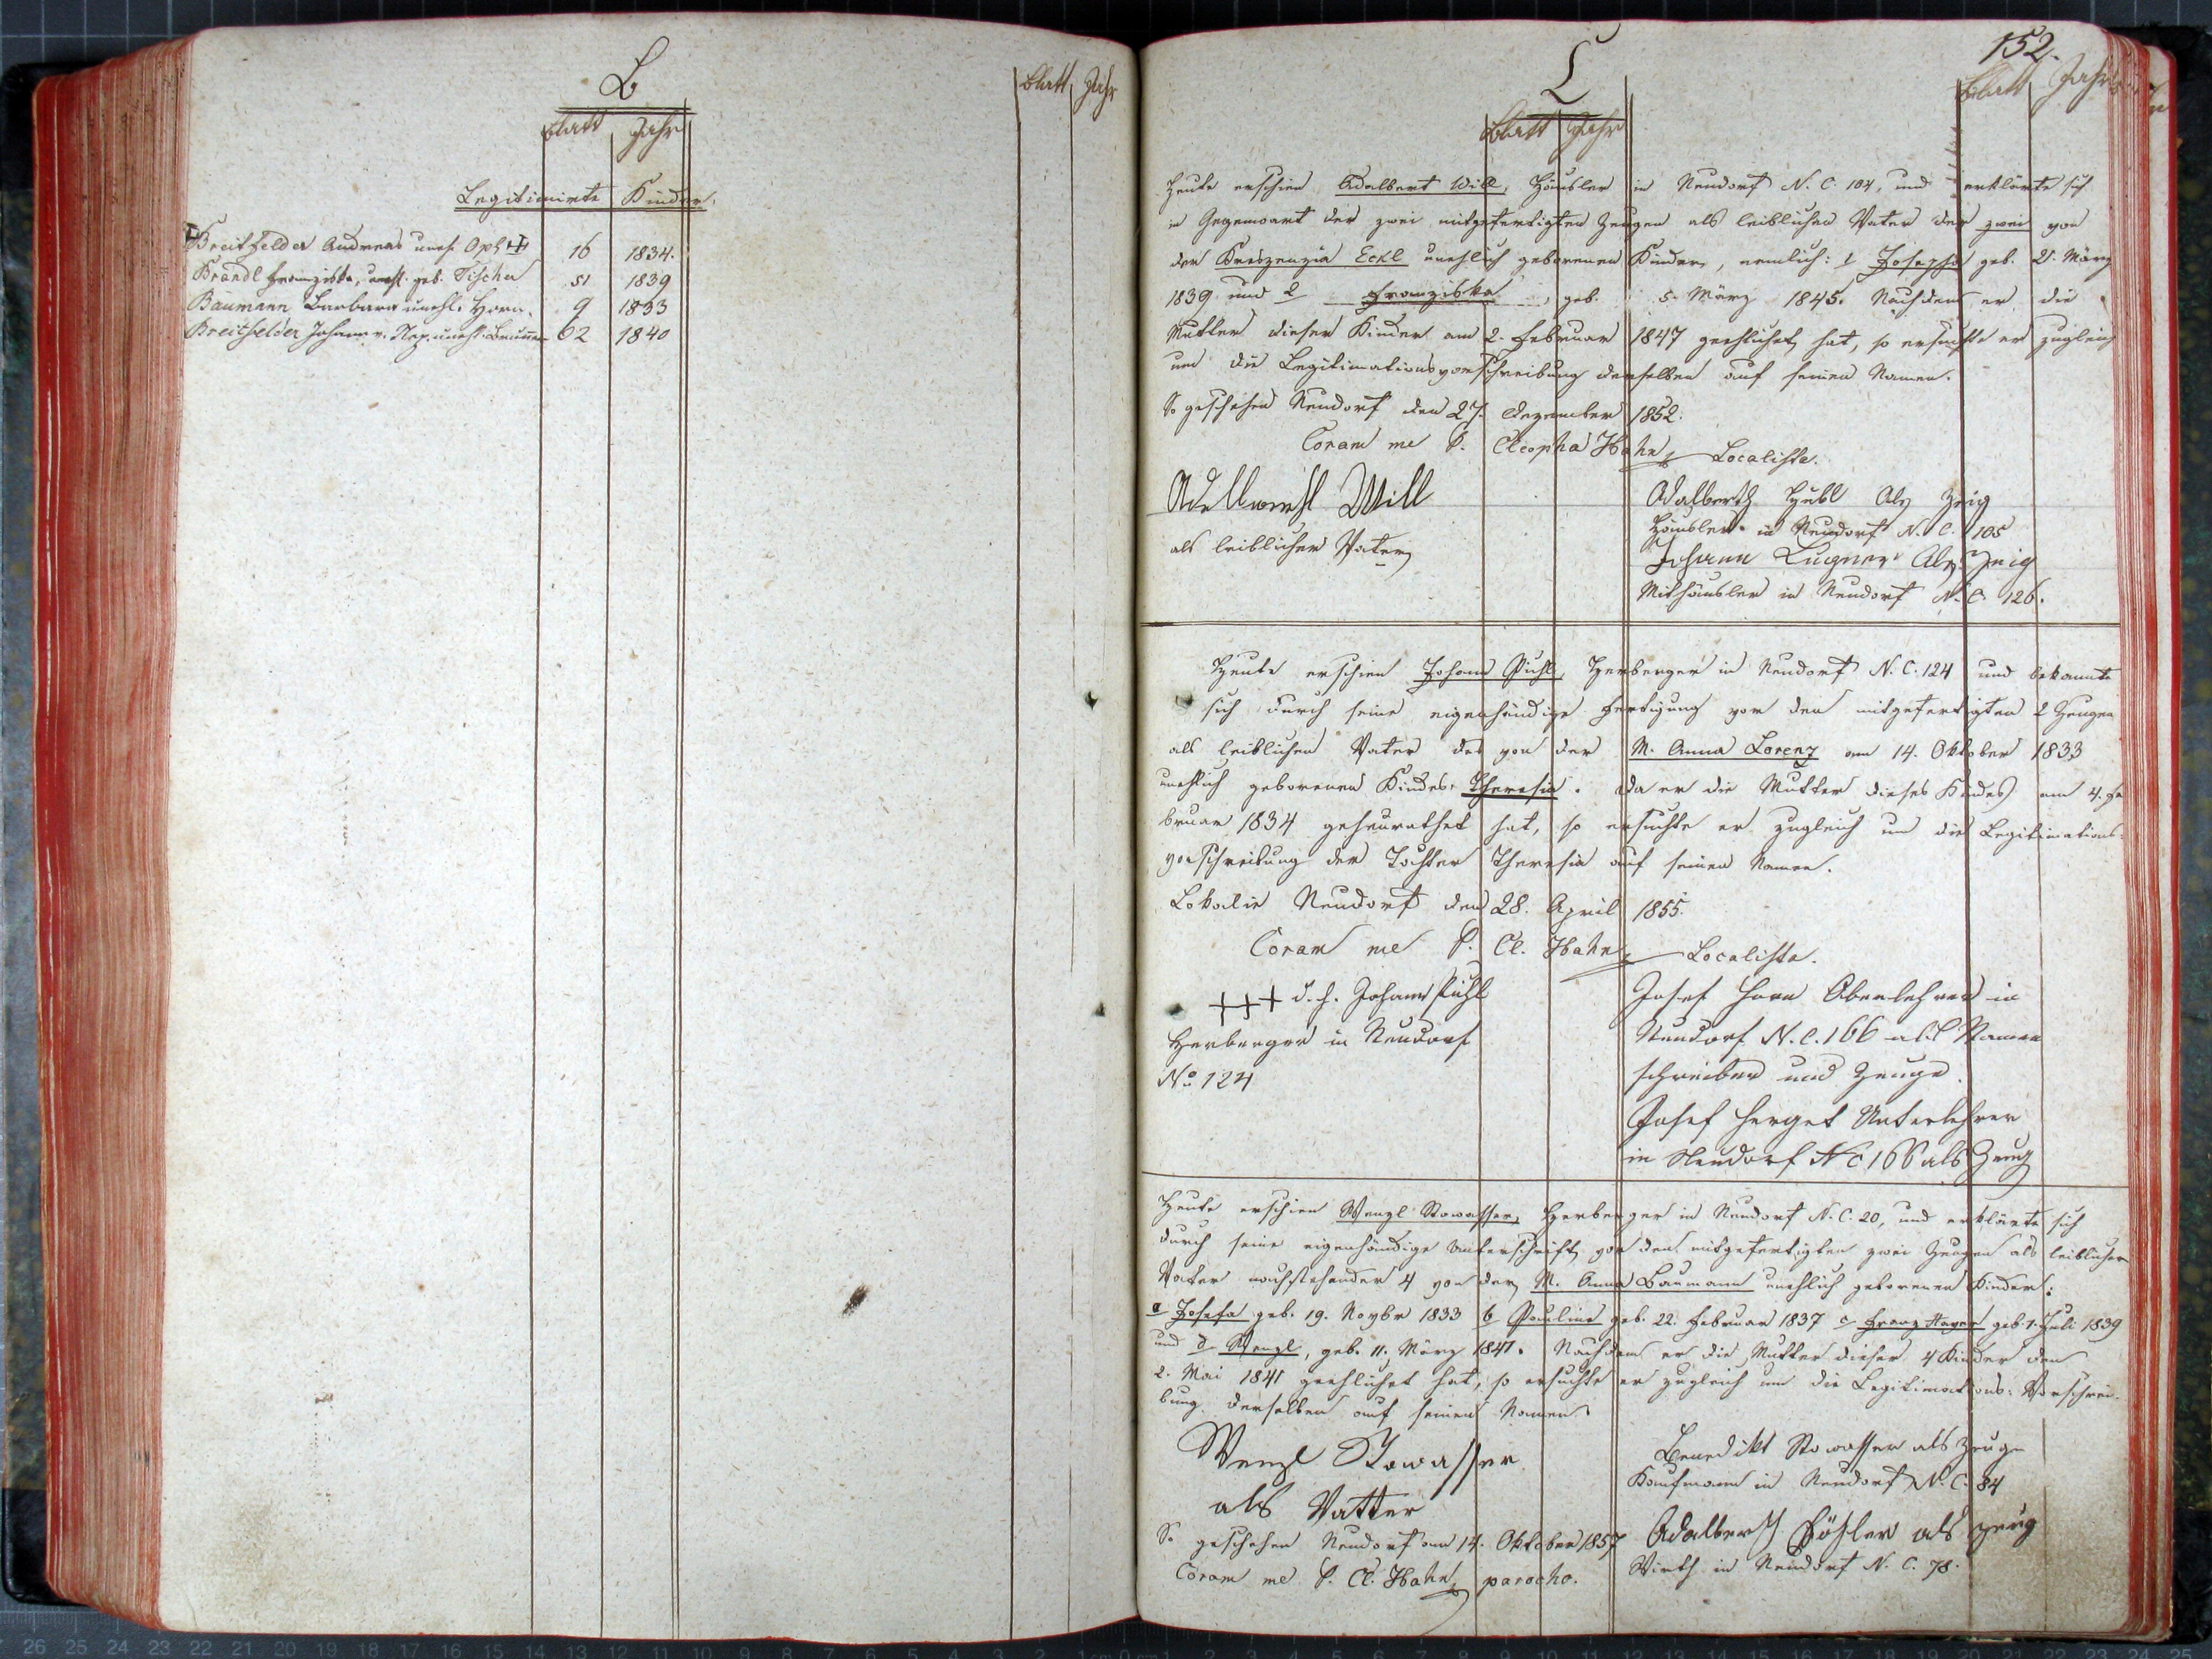 B
Blatt Jahr
Blatt Jahr
Legitimirte Kinder.
Breitfelder Andreas uneh. Opl 16 1834.
Brandl Franziska, unehl. geb. Tischer 51 1839
Baumann Barbara unehl. Horn. 9 1833
Breitfelder Johann v. Nep. unehl. 62 1840
152.
Blatt Jahr
Blatt Jahr
Heute erschien Adalbert Will, Häusler in Neudorf N. C. 104, und erklärte sich
in Gegenwart der zwei mitgefertigten Zeugen als leiblichen Vater der zwei von
der Kreszenzia Eckl unehlich geborenen Kinder, nemlich: 1 Josepha geb. 21. März
1839 und 2 Franziska, geb. 5. März 1845. Nachdem er die
Mutter dieser Kinder am 2. Februar 1847 geehlichet hat, so ersuchte er zugleich
um die Legitimationsvorschreibung derselben auf seinen Namen.
So geschehen Neudorf den 27. Dezember 1852.
Coram me P. Cleopha Hahn Localista.
Adellwerht Will
als leiblicher Vater
Adalberth Hubl Als Zeig
Häusler in Neudorf N. C. 105
Johann Lugner Als Zeig
Mithäusler in Neudorf N. C. 126.
Heute erschien Johann Puhl, Herberger in Neudorf N. C. 124 und bekannte
sich durch seine eigenhändige Fertigung vor den mitgefertigten 2 Zeugen
als leiblichen Vater des von der M. Anna Lorenz am 14. Oktober 1833
unehlich geborenen Kindes Theresia. Da er die Mutter dieses Kindes am 4. Fe
bruar 1834 geheurathet hat, so ersuchte er zugleich um die Legitimations-
vorschreibung der Tochter Theresia auf seinen Namen.
Lokalie Neudorf den 28. April 1855.
Coram me P. Cl. Hahn Localista.
+++ d. h. Johann Puhl
Herberger in Neudorf
No 124
Josef Horn Oberlehrer in
Neudorf N. C. 166 als Namen
schreiber und Zeuge.
Josef Herget Unterlehrer
in Neudorf N C 166 als Zeug
Heute erschien Wenzl Stowasser, Herberger in Neudorf N. C. 20, und erklärte sich
durch seine eigenhändige Unterschrift vor den mitgefertigten zwei Zeugen als leiblicher
Vater nachstehender 4 von der M. Anna Baumann unehlich geborenen Kinder:
a Josefa geb. 19. Novbr 1833 b Pauline geb. 22. Februar 1837 c Franz Xaver geb. 1. Juli 1839
und d Wenzl, geb. 11. März 1841. Nachdem er die Mutter dieser 4 Kinder den
2. Mai 1841 geehlichet hat, so ersuchte er zugleich um die Legitimations-Vorschrei-
bung derselben auf seinen Namen.
Wenzl Stowasser
als Vatter
Benedikt Stowasser als Zeuge
Kaufmann in Neudorf N. C. 84
So geschehen Neudorf am 14. Oktober 1857
Adalbert Hösler als Zeug
Wirth in Neudorf N. C. 78.
Coram me P. Cl. Hahn parocho.